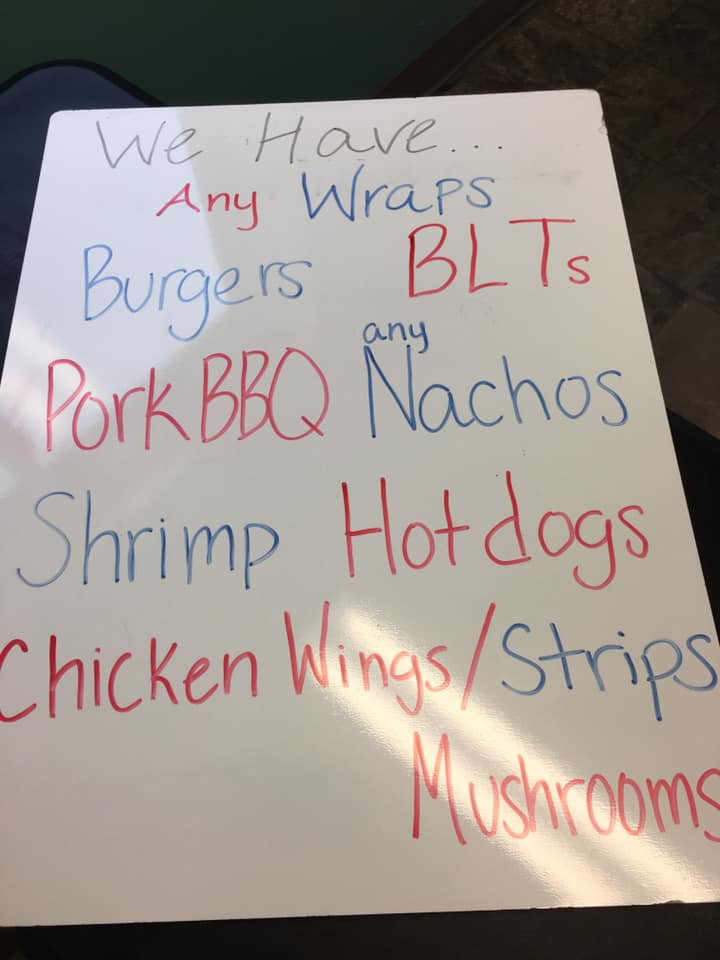 We Have...
Any Wraps
Burgers BLTs
Pork BBQ any Nachos
Shrimp Hotdogs
Chicken Wings/Strips
Mushrooms